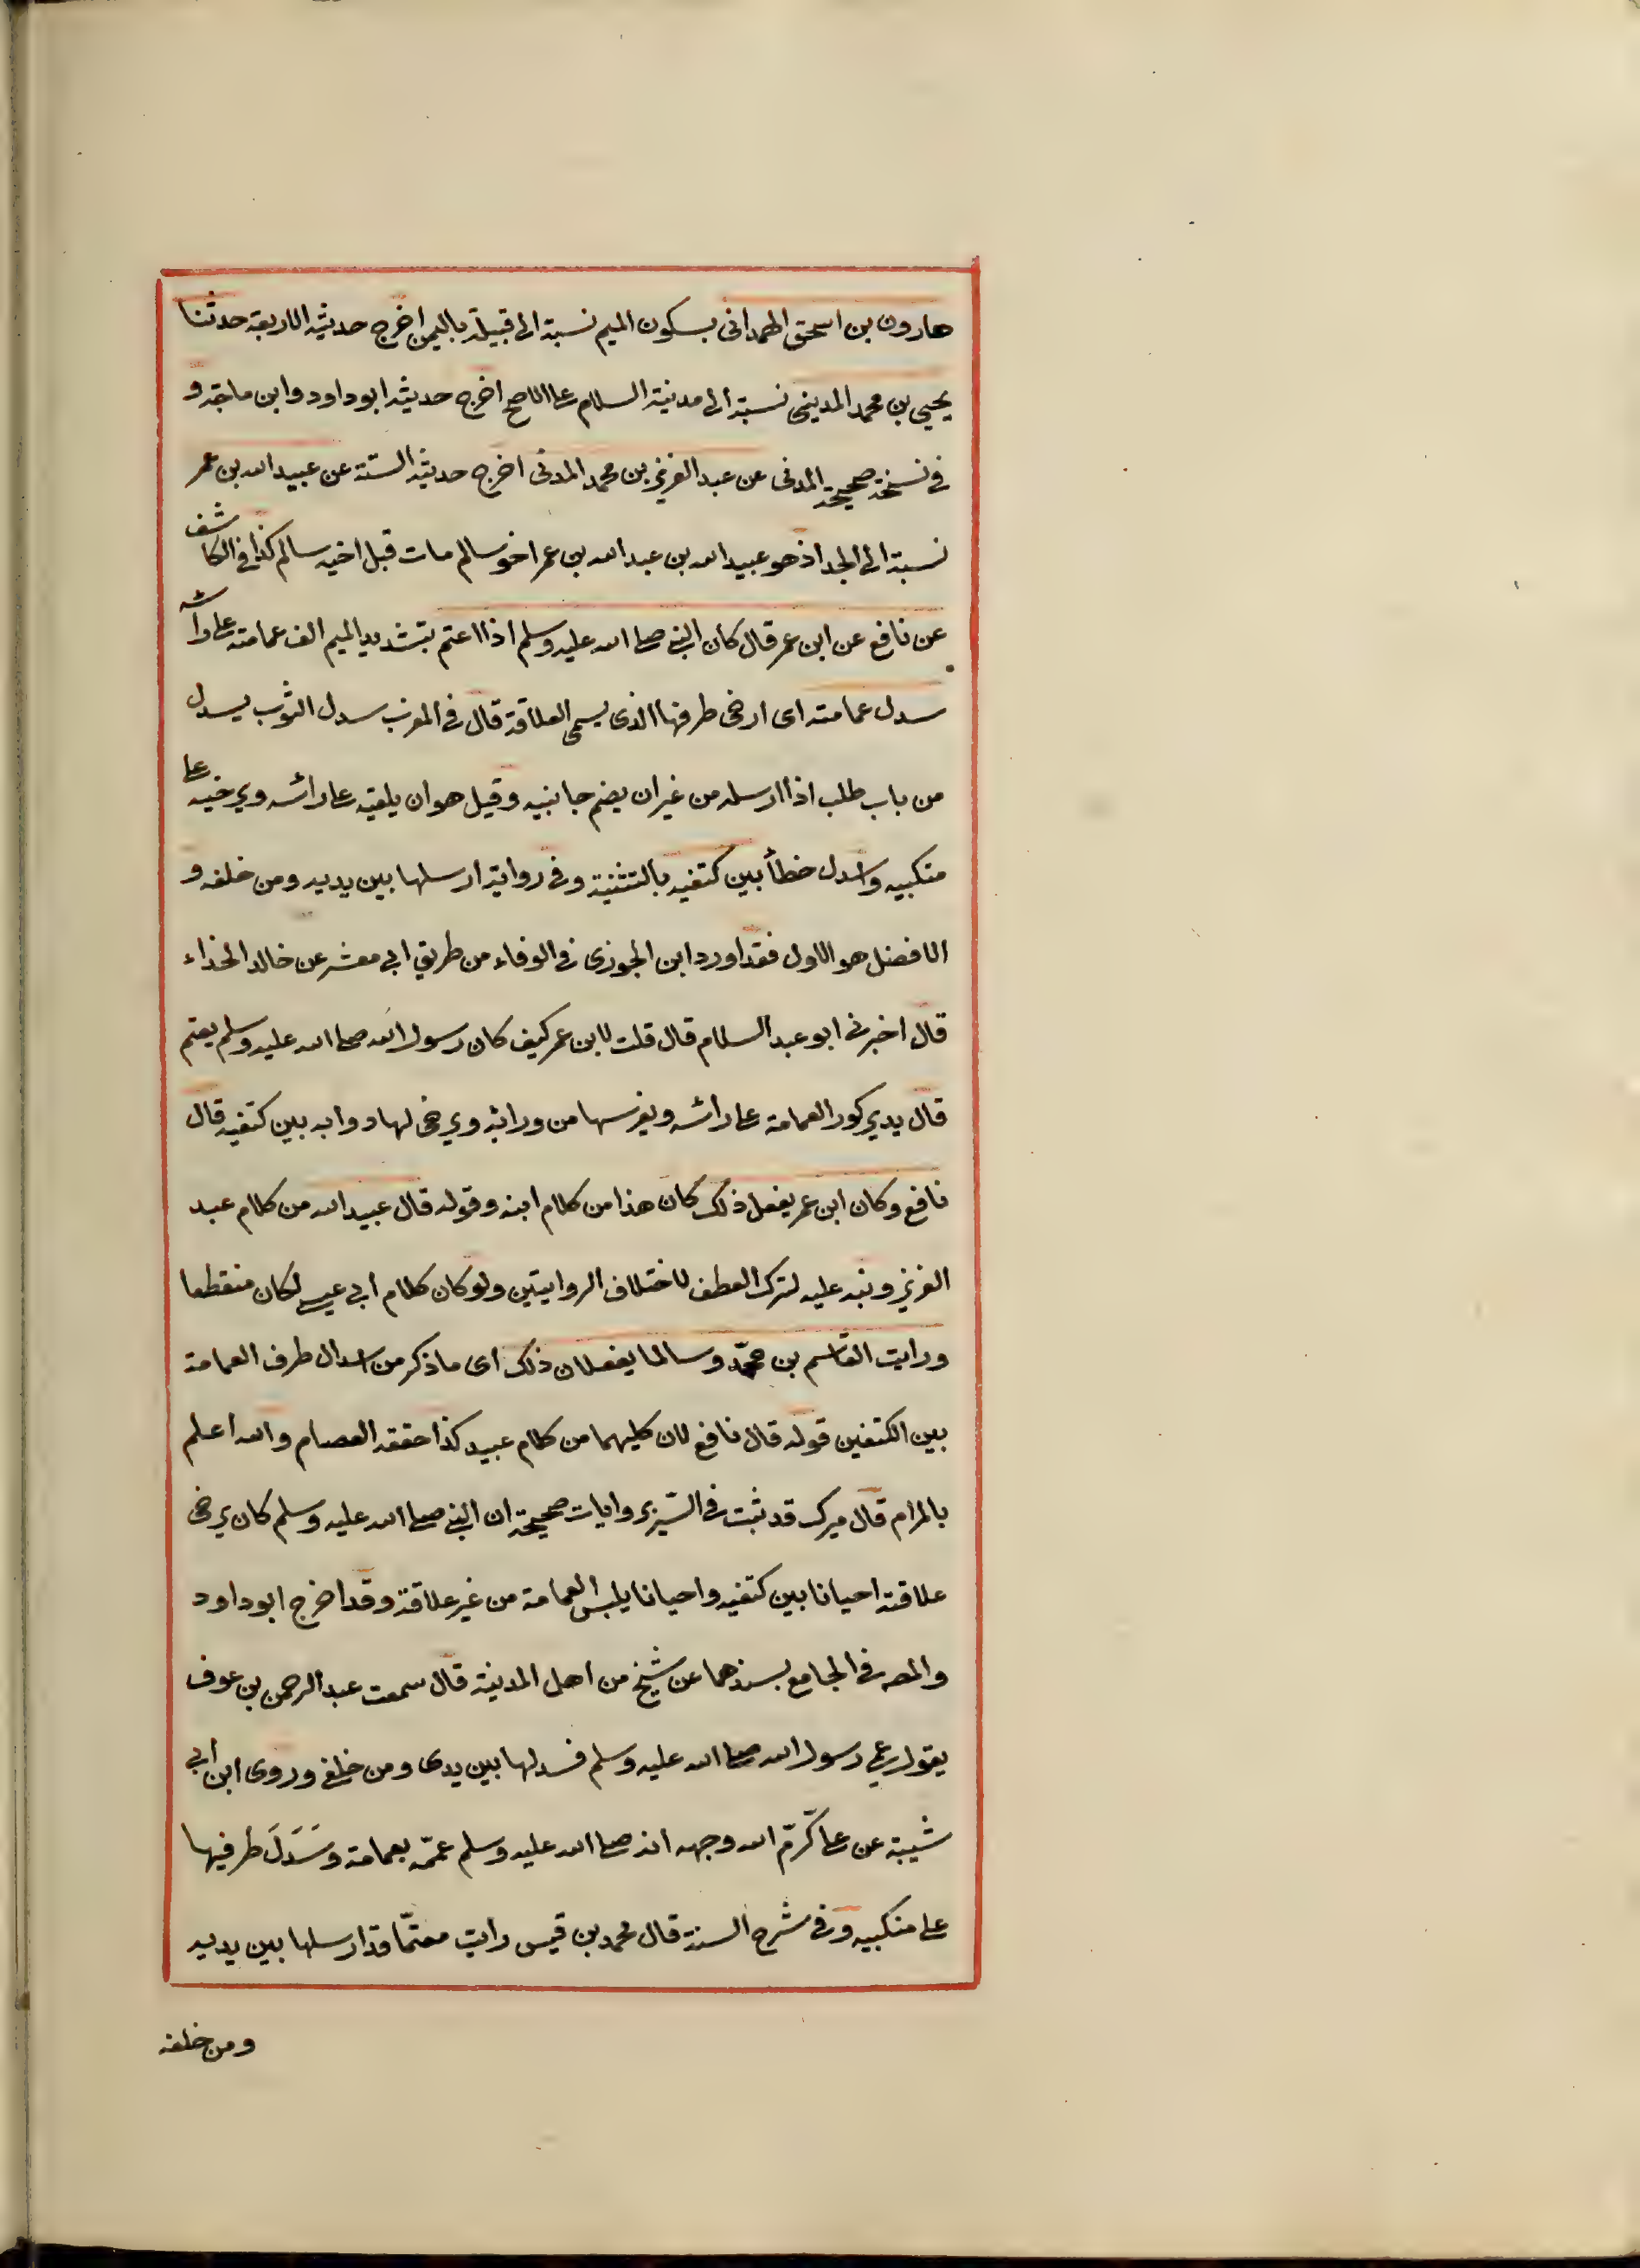 هارون بن اسحق الهمدانى بسكون الميم نسبة الى قبيلة باليمن اخرج حديثه الاربعة حدثنا
يحيى بن محمد المدينى نسبة الى مدينة السلام على الاصح اخرج حديثه ابو داود وابن ماجة و
فى نسخة صحيحة المدنى عن عبد العزيز بن محمد المدنى اخرج حديثه الستة عن عبيد الله بن عمر
نسبة الى الجد اذ هو عبيد الله بن عبد الله بن عمر اخو سالم مات قبل اخيه سالم كذا فى الكاشف
عن نافع عن ابن عمر قال كان النبى صلى الله عليه وسلم اذا اعتم بتشديد الميم الف عمامته على رأسه
سدل عمامته اى ارخى طرفها الذى يسمى العلاقة قال فى المغرب سدل الثوب يسدل
من باب طلب اذا ارسله من غير ان يضم جانبيه وقيل هو ان يلقيه على رأسه ويرخيه على
منكبيه واسدل خطأ بين كتفيه بالتثنية وفى رواية ارسلها بين يديه ومن خلفه و
الافضل هو الاول فقد اورد ابن الجوزى فى الوفاء من طريق ابى معشر عن خالد الحذاء
قال اخبرنى ابو عبد السلام قال قلت لابن عمر كيف كان رسول الله صلى الله عليه وسلم يعتم
قال يدير كور العمامة على رأسه ويغرسها من ورائه ويرخى لها دوابه بين كتفيه قال
نافع وكان ابن عمر يفعل ذلك كان هذا من كلام ابنه وقوله قال عبيد الله من كلام عبد
العزيز ونبه عليه لترك العطف لاختلاف الروايتين ولو كان كلام ابى عيسى لكان منقطعا
ورايت القاسم بن محمّد وسالما يفعلان ذلك اى ما ذكر من اسدال طرف العمامة
بين الكتفين قوله قال نافع لان كليهما من كلام عبيد كذا حققه العصام والله اعلم
بالمرام قال ميرك قد ثبت فى السّير بروايات صحيحة ان النبى صلى الله عليه وسلم كان يرخى
علاقته احيانا بين كتفيه واحيانا يلبس العمامة من غير علاقة وقد اخرج ابو داود
والمصه فى الجامع بسندهما عن شيخ من اهل المدينة قال سمعت عبد الرحمن بن عوف
يقول عممنى رسول الله صلى الله عليه وسلم فسدلها بين يدى ومن خلفى وروى ابن ابى
شيبة عن على كرّم الله وجهه انه صلى الله عليه وسلم عمّه بعمامة وسَدَلَ طرفيها
على منكبيه وفى شرح السنة قال محمد بن قيس رايت معتمّا قد ارسلها بين يديه
ومن خلفه